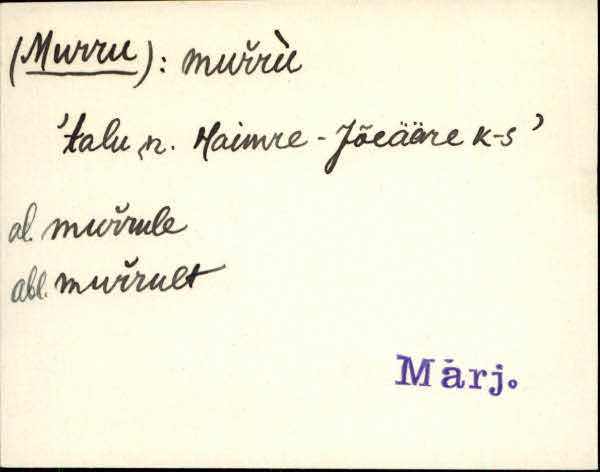 (Murru): muřrù
'talu, n. Haimre - Jõeääre k-s'
al. muřrule
abl. muřrult
Märj.